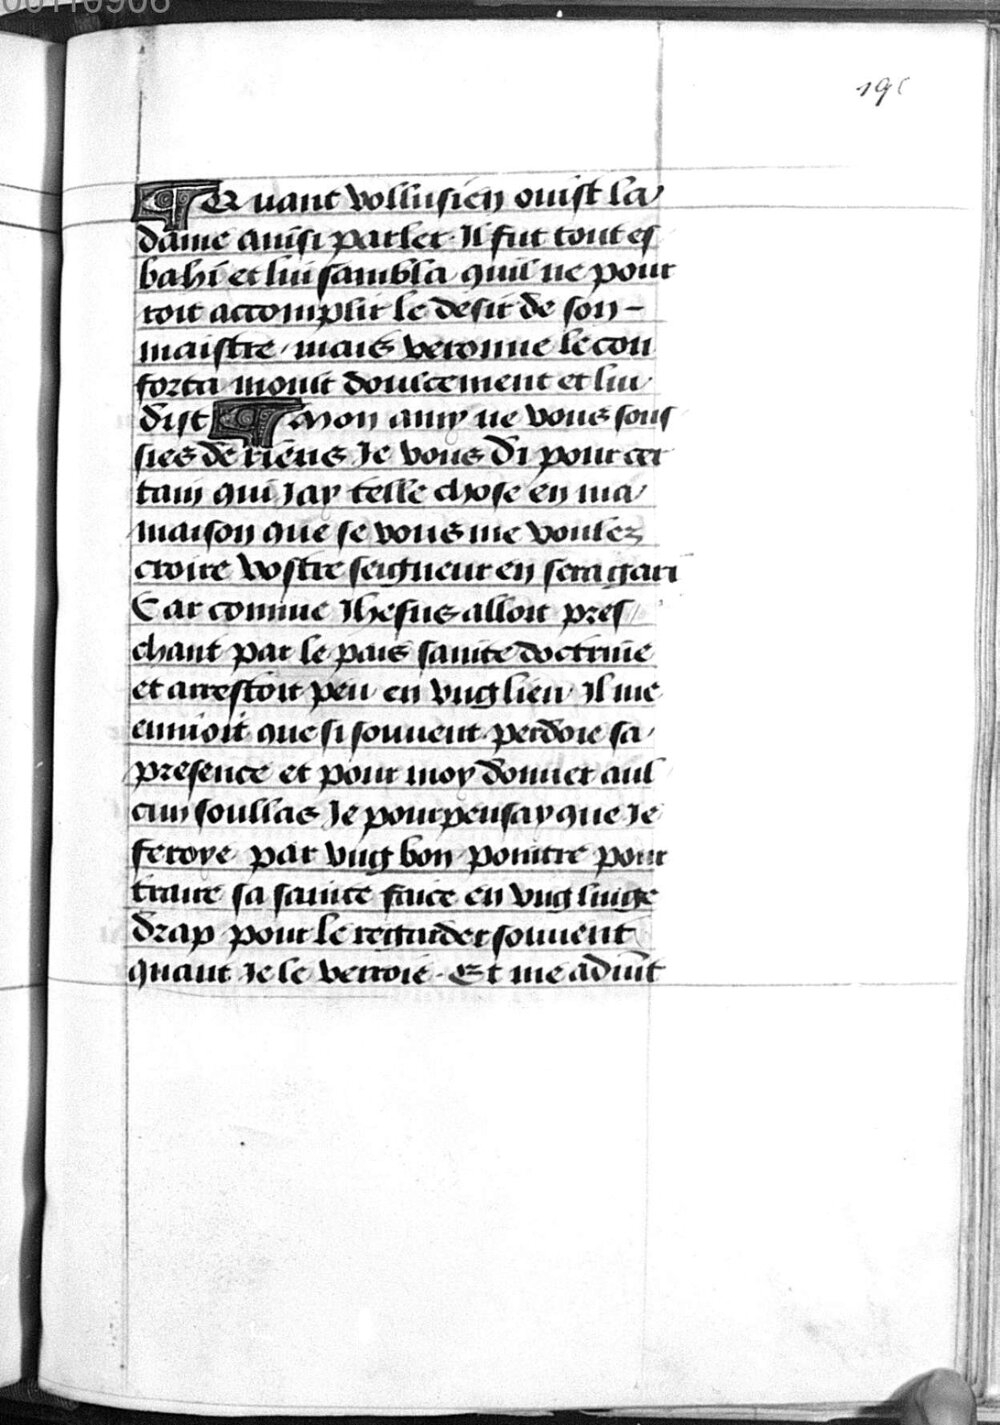 195
¶ Quant vollusien ouist la
dame ainsi parler. Il fut tout es
bahi et lui sambla quil ne pour
roit accomplir le desir de son -
maistre / mais veronne le con
forta mout doulcement et lui
dist ¶ Mon amy ne vous sous
sies de riens Je vous di pour cer
tain qui Jay telle chose en ma
maison que se vous me voulez
croire vostre seigneur en sera gari
Car comme Jhesus alloit pres
chant par le pais sainte doctrine
et arrestoit peu en vng lieu Il me
ennoit que si souuent perdoie sa
presence et pour moy donner aul
cun soullas Je pourpensay que Je
feroye par vng bon pointre pour
traire sa sainte face en vng linge
drap pour le regarder souuent
quant Je le verroie. Et me aduint